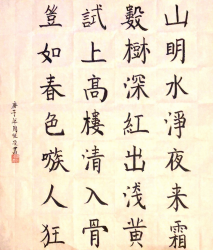 山明水淨夜来霜
數樹深紅出淺黄
試上高樓清入骨
豈如春色嗾人狂
庚子年書